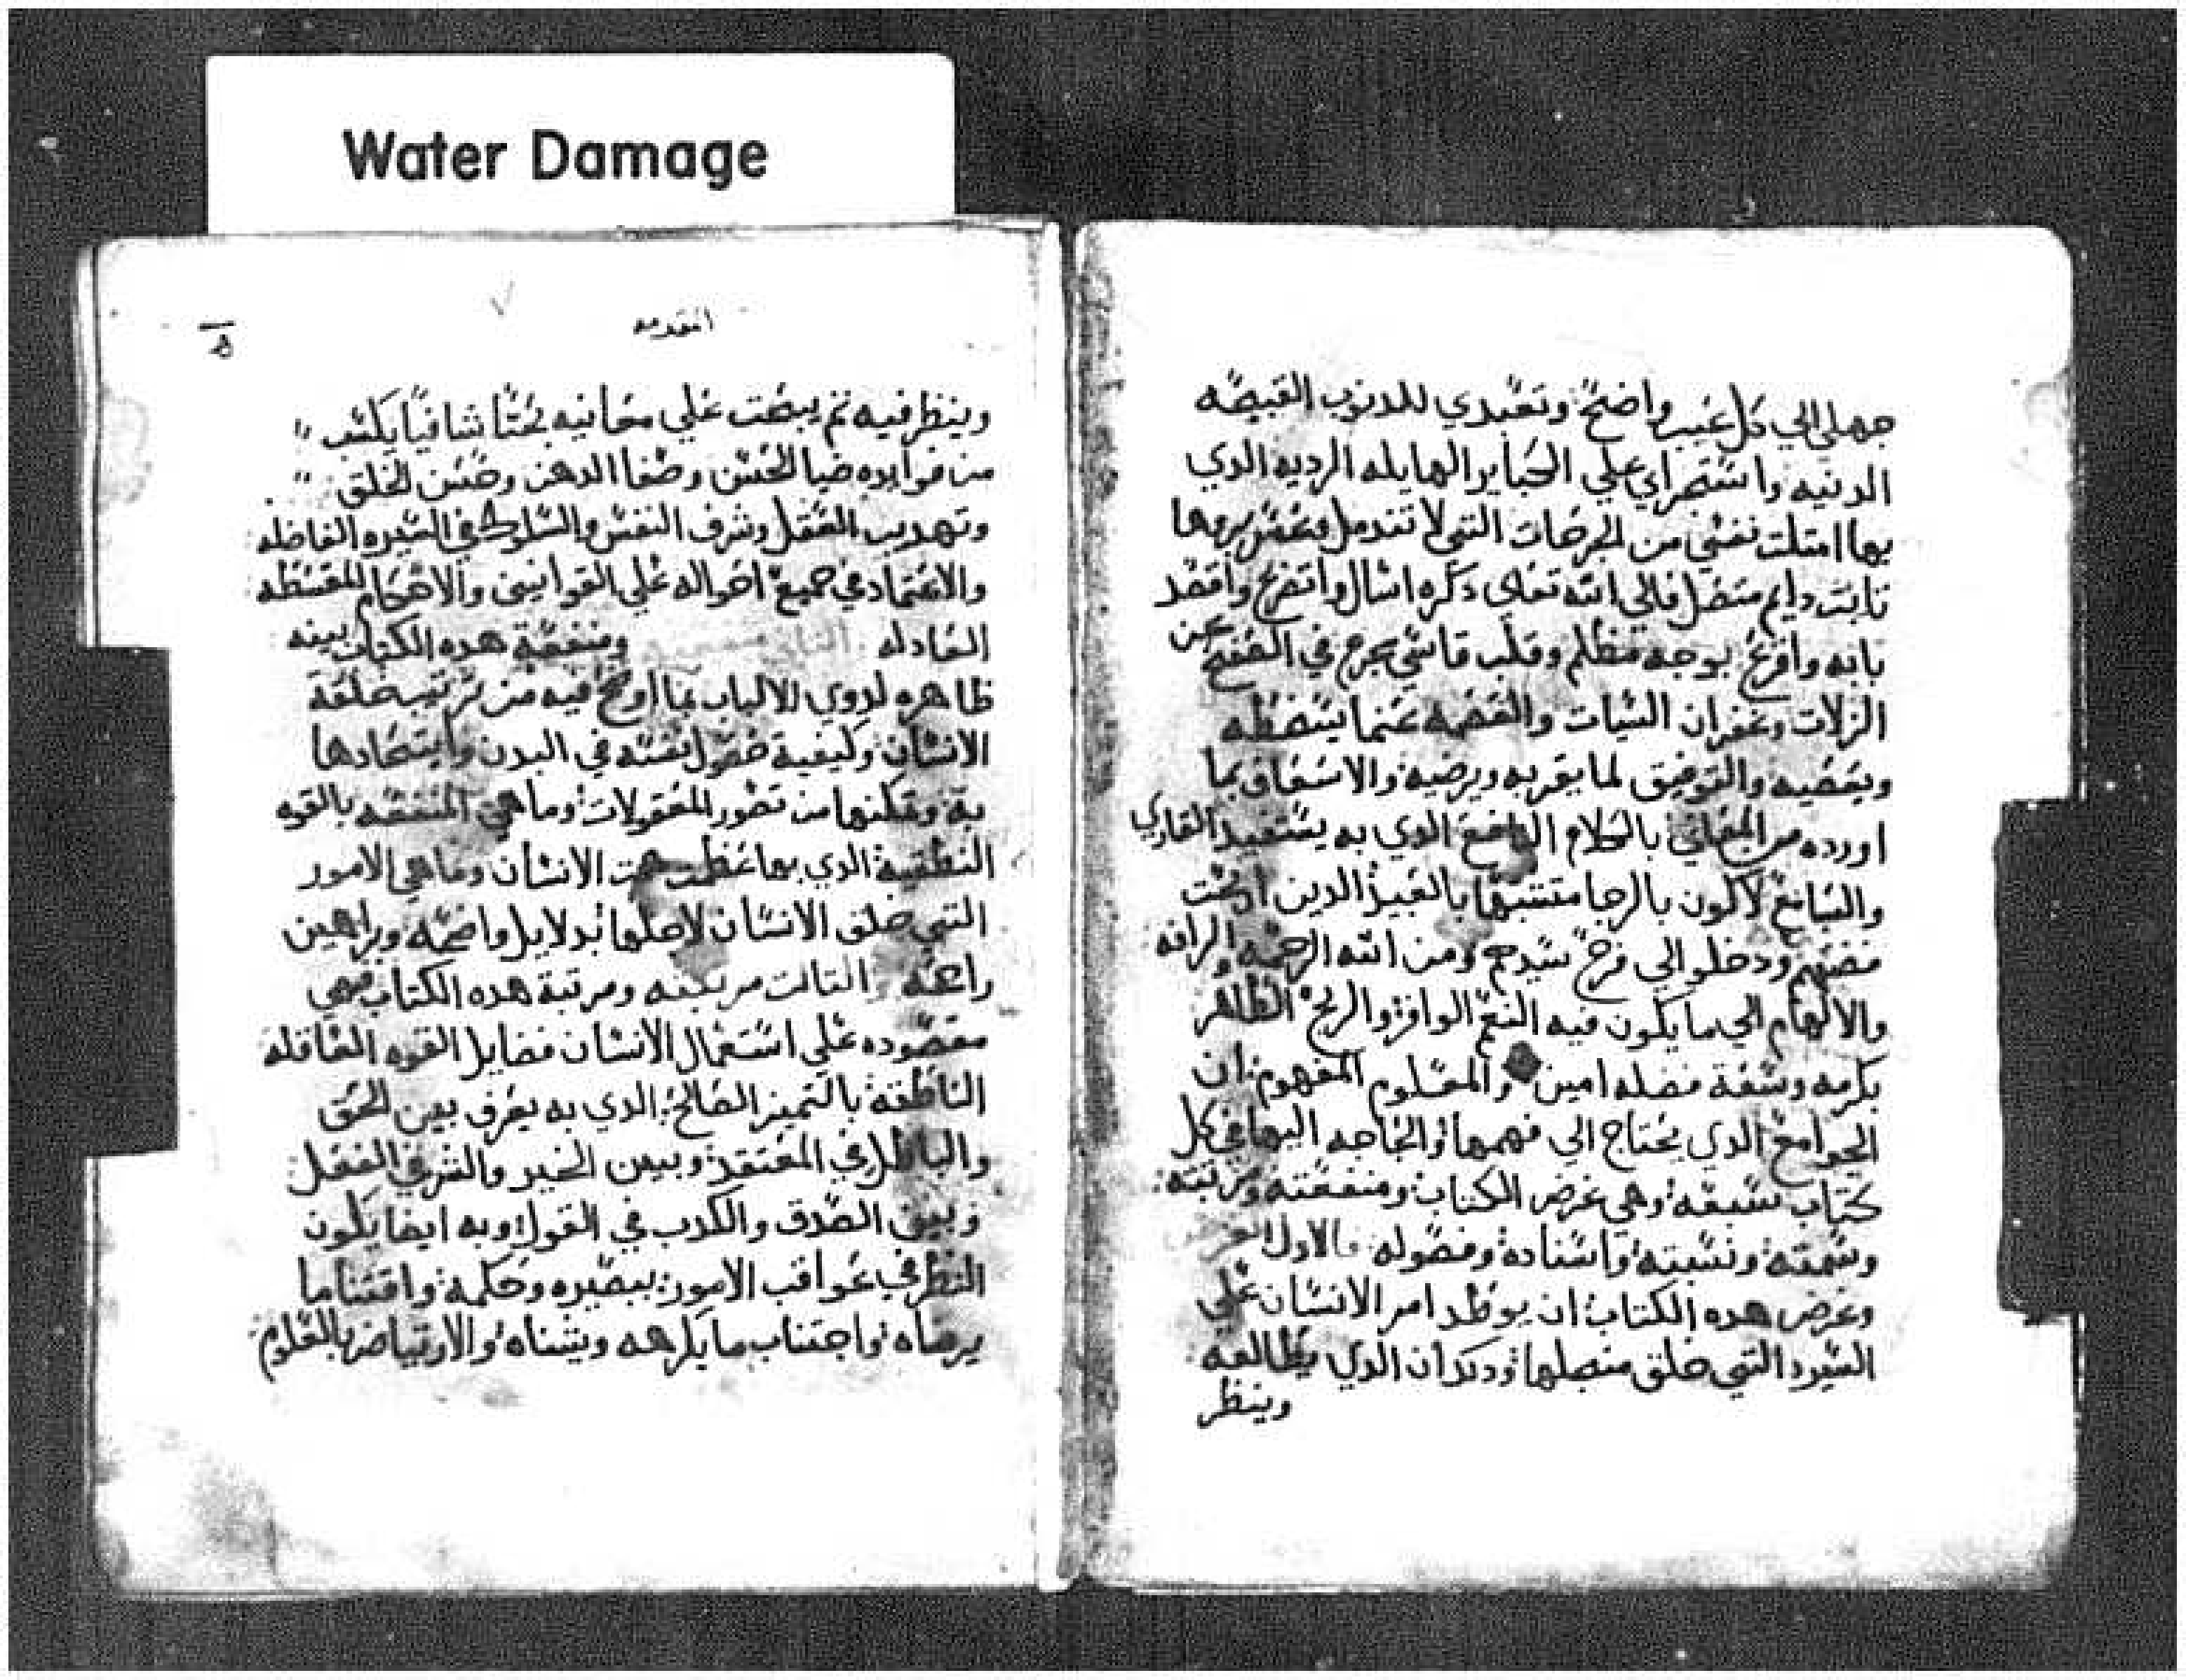 Water Damage
جهلي الي كل غيب واضح وتعبدي للدنوب القبيحه
الدنيه واستجراي علي الكباير الهايله الرديه الدي
بها امتلت نفسي من الجرحات التي لا تندمل وغش برها
تابت دايم متصل فالي الله تعالي دكره اسال واتضرع واقصد
بابه واقرع بوجه مظلم وقلب قاسي بجرح في الصفح عن
الزلات وغفران السيات والعصمه عنما يسخطه
ويغضبه والتوفيق لما يقربه ويرضيه والاسعاف بما
اورده من المعاني بالكلام الواضح الدي به يستفيد القاري
والسامع لاكون بالرجا متشبها بالعبيد الدين اربحت
فضتهم ودخلوا الي فرح سيدهم ومن الله الرحمه والرافه
والالهام الي ما يكون فيه النفع الوافر والربح الظاهر
بكرمه وسعة فضله امين والمعلوم المفهوم ان
الجوامع الدي يحتاج الي فهمها والحاجه اليها في كل
كتاب سبعه وهي غرض الكتاب ومنفعته ومرتبته
وسمته ونسبته واسناده وفصوله فالاول الغرض
وغرض هده الكتاب ان يوطد امر الانسان علي
السيره التي خلق من اجلها ودلك ان الدي يطالعه
وينظر
المقدمه
وينظر فيه ثم يبحت علي معانيه بحتا شافيا يكتسب
من فوايده ضيا الحسن وصفا الدهن وحسن الخلق
وتهديب العقل وشرف النفس والسلوك في السيره الفاضله
والاعتماد في جميع احواله علي القوانين والاحكام المقسطه
العادله الثاني ومنفعة هده الكتاب بينه
ظاهره لدوي الالباب بما اوضح فيه من ترتيب خلقة
الانسان وكيفية حصول نفسه في البدن وايتحادها
به وتمكنها من تصور المعقولات وما هي المنفعه بالقوه
النطقيه الدي بها عظمت همت الانسان وما هي الامور
التي خلق الانسان لاجلها بدلايل واضحه وبراهين
راهنه الثالت مرتبته ومرتبة هده الكتاب فهي
مقصوده علي استعمال الانسان فضايل القوه العاقله
الناطقه بالتميز الصالح الدي به يعرف بين الحق
والباطل في المعتقد وبين الخير والشر في الفعل
وبين الصدق والكدب في القول وبه ايضا يكون
النظر في عواقب الامور ببصيره وحكمه واقتنا ما
يرضاه واجتناب ما يكرهه ويشناه والارتياض بالعلوم